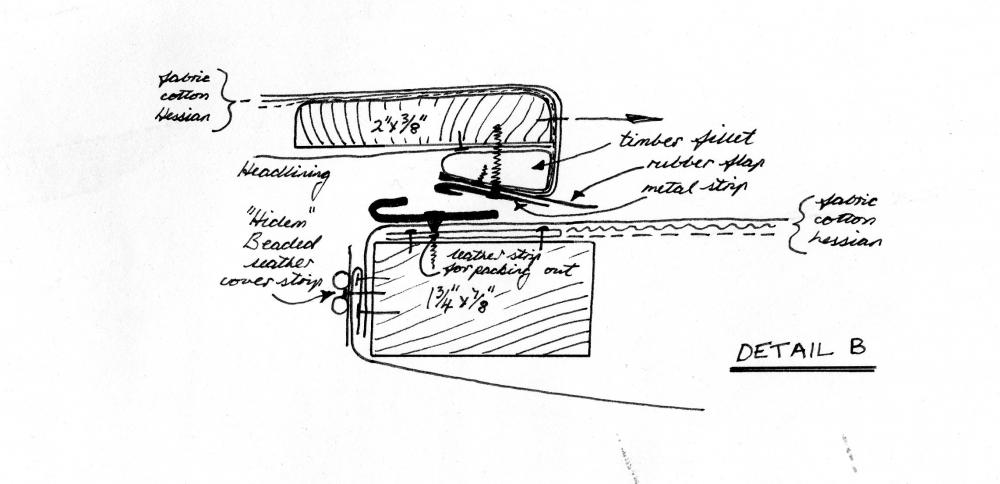 fabric
cotton
Hessian
2" x 3/8"
timber fillet
rubber flap
metal strip
Headlining
"Hidem"
Beaded
leather
cover strip
fabric
cotton
hessian
leather strip
for packing out
1 3/4" x 7/8"
DETAIL B